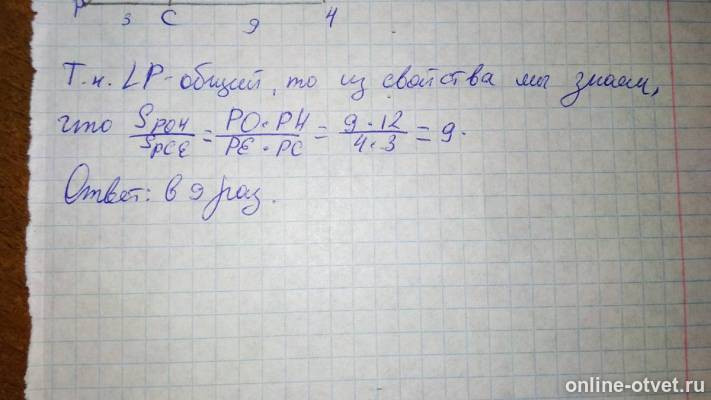 P 3 C 9 4
Т.к. ∠P - общий, то из свойства мы знаем,
что S_POH/S_PCE = PO·PH/PE·PC = 9·12/4·3 = 9.
Ответ: в 9 раз.
online-otvet.ru